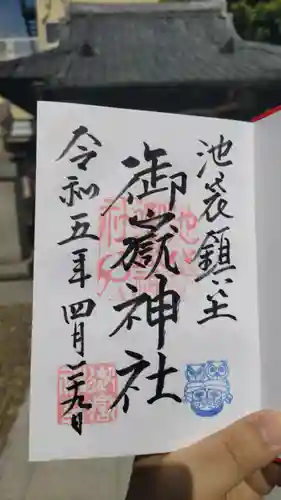 池袋鎮座
御嶽神社
令和五年四月二十九日